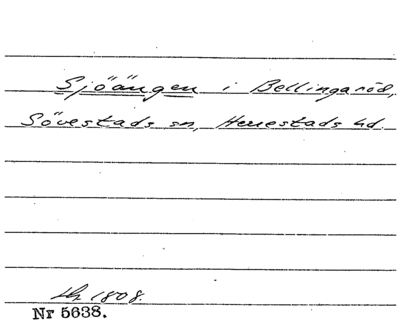 Sjöängen i Bellingaröd,
Sövestads sn, Herrestads hd.
1808.
Nr 5638.